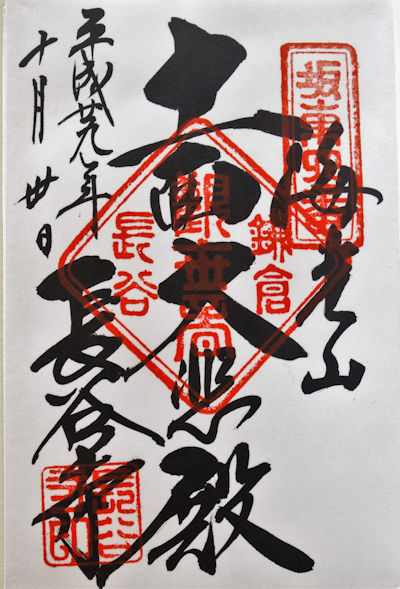 坂東四番
海光山
十一面大悲殿
長谷寺
平成廿九年
十月卅日
鎌倉
長谷
長谷寺印